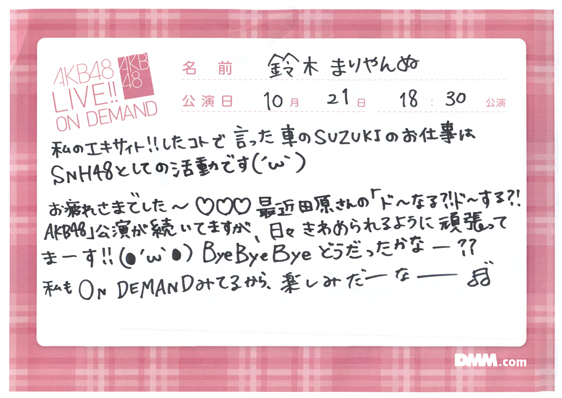 AKB48
LIVE!!
ON DEMAND
AKB
48
名前 鈴木まりやんぬ
公演日 10月 21日 18:30 公演
私のエキサイト!!したコトで言った車のSUZUKIのお仕事は
SNH48としての活動です(´ω`)
お疲れさまでした～♡♡♡最近田原さんの「ド〜なる?!ド〜する?!
AKB48」公演が続いてますが、日々きわめられるように頑張って
まーす!!(●´ω`●) ByeByeByeどうだったかなー??
私もON DEMANDみてるから、楽しみだーなー♬
DMM.com